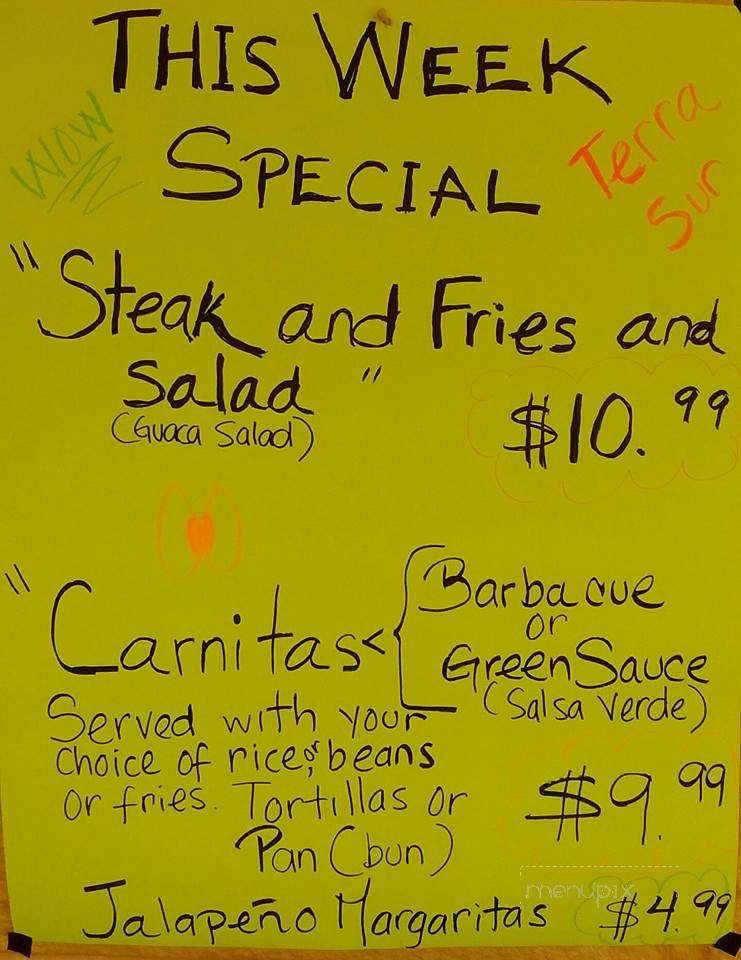 THIS WEEK
WOW
SPECIAL
Terra
Sur
"Steak and Fries and
Salad"
(Guaca Salad)
$10.99
"Carnitas < { Barbacue
or
Green Sauce
(Salsa Verde)
Served with your
choice of rice or beans
or fries. Tortillas or
Pan (bun)
$9.99
menupix
Jalapeño Margaritas $4.99